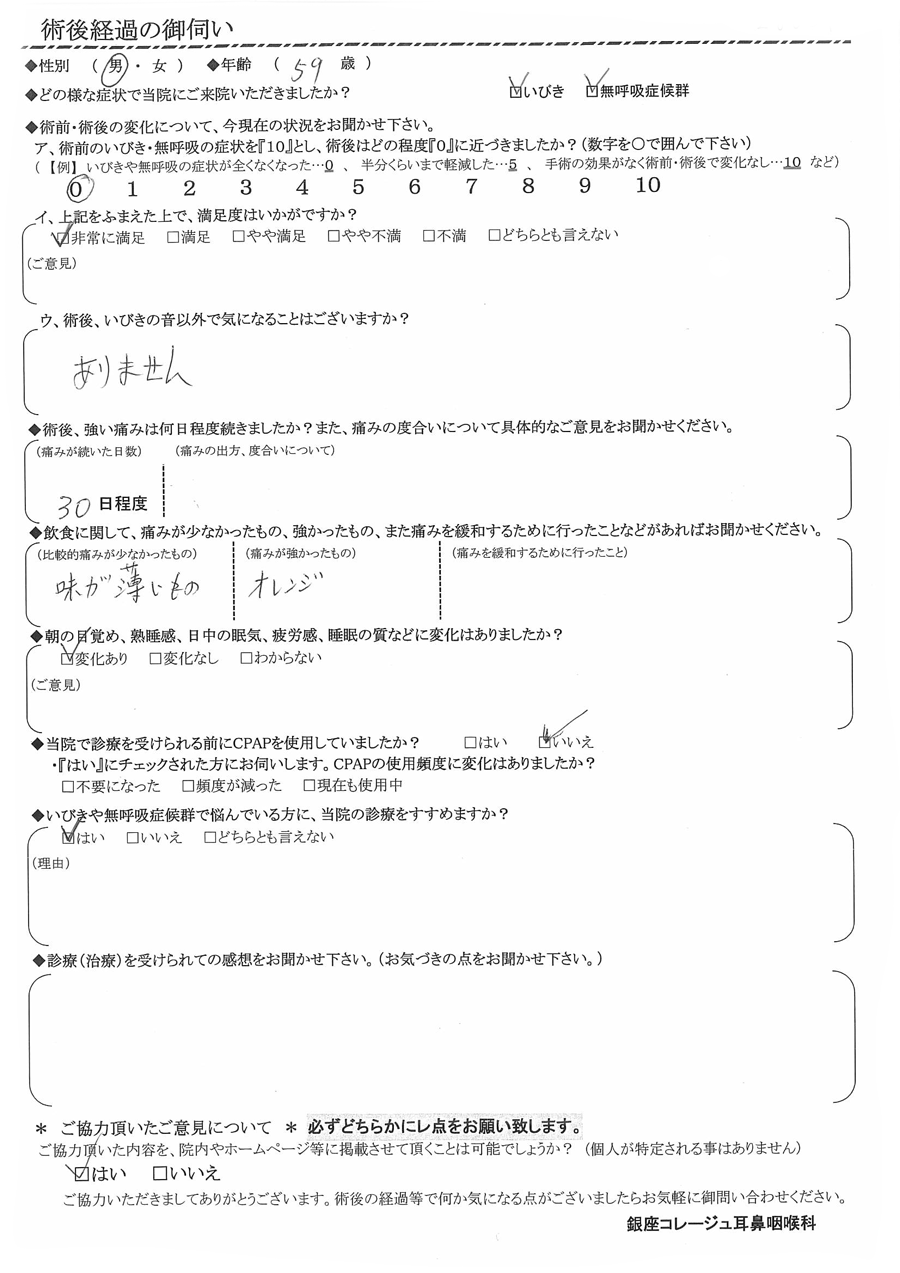 術後経過の御伺い
◆性別 （ 男 ・ 女 ） ◆年齢 （ 59 歳 ）
◆どの様な症状で当院にご来院いただきましたか？ ☑いびき ☑無呼吸症候群
◆術前・術後の変化について、今現在の状況をお聞かせ下さい。
ア、術前のいびき・無呼吸の症状を『10』とし、術後はどの程度『0』に近づきましたか？（数字を〇で囲んで下さい）
（【例】 いびきや無呼吸の症状が全くなくなった…0 、 半分くらいまで軽減した…5 、 手術の効果がなく術前・術後で変化なし…10 など）
0 1 2 3 4 5 6 7 8 9 10
イ、上記をふまえた上で、満足度はいかがですか？
☑非常に満足 □満足 □やや満足 □やや不満 □不満 □どちらとも言えない
（ご意見）
ウ、術後、いびきの音以外で気になることはございますか？
ありません
◆術後、強い痛みは何日程度続きましたか？また、痛みの度合いについて具体的なご意見をお聞かせください。
（痛みが続いた日数） （痛みの出方、度合いについて）
30 日程度
◆飲食に関して、痛みが少なかったもの、強かったもの、また痛みを緩和するために行ったことなどがあればお聞かせください。
（比較的痛みが少なかったもの） （痛みが強かったもの） （痛みを緩和するために行ったこと）
味が薄いもの オレンジ
◆朝の目覚め、熟睡感、日中の眠気、疲労感、睡眠の質などに変化はありましたか？
☑変化あり □変化なし □わからない
（ご意見）
◆当院で診療を受けられる前にCPAPを使用していましたか？ □はい ☑いいえ
・『はい』にチェックされた方にお伺いします。CPAPの使用頻度に変化はありましたか？
□不要になった □頻度が減った □現在も使用中
◆いびきや無呼吸症候群で悩んでいる方に、当院の診療をすすめますか？
☑はい □いいえ □どちらとも言えない
（理由）
◆診療（治療）を受けられての感想をお聞かせ下さい。（お気づきの点をお聞かせ下さい。）
＊ ご協力頂いたご意見について ＊ 必ずどちらかにレ点をお願い致します。
ご協力頂いた内容を、院内やホームページ等に掲載させて頂くことは可能でしょうか？ （個人が特定される事はありません）
☑はい □いいえ
ご協力いただきましてありがとうございます。術後の経過等で何か気になる点がございましたらお気軽に御問い合わせください。
銀座コレージュ耳鼻咽喉科